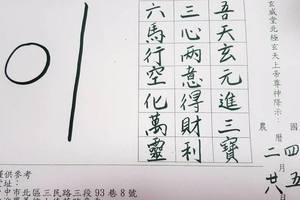 玄威堂北極玄天上帝尊神降示：
吾天玄元進三寶
三心兩意得財利
六馬行空化萬靈
農曆 月
僅供參考
址：
中市北區三民路三段93巷8號